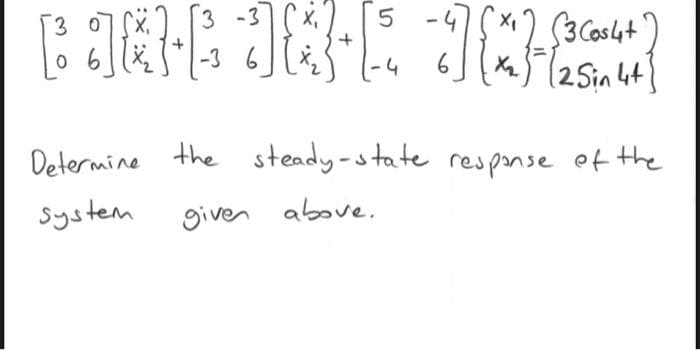 [3 0; 0 6] {ẍ₁; ẍ₂} + [3 -3; -3 6] {ẋ₁; ẋ₂} + [5 -4; -4 6] {x₁; x₂} = {3Cos4t; 2Sin4t}
Determine the steady-state response of the
system given above.